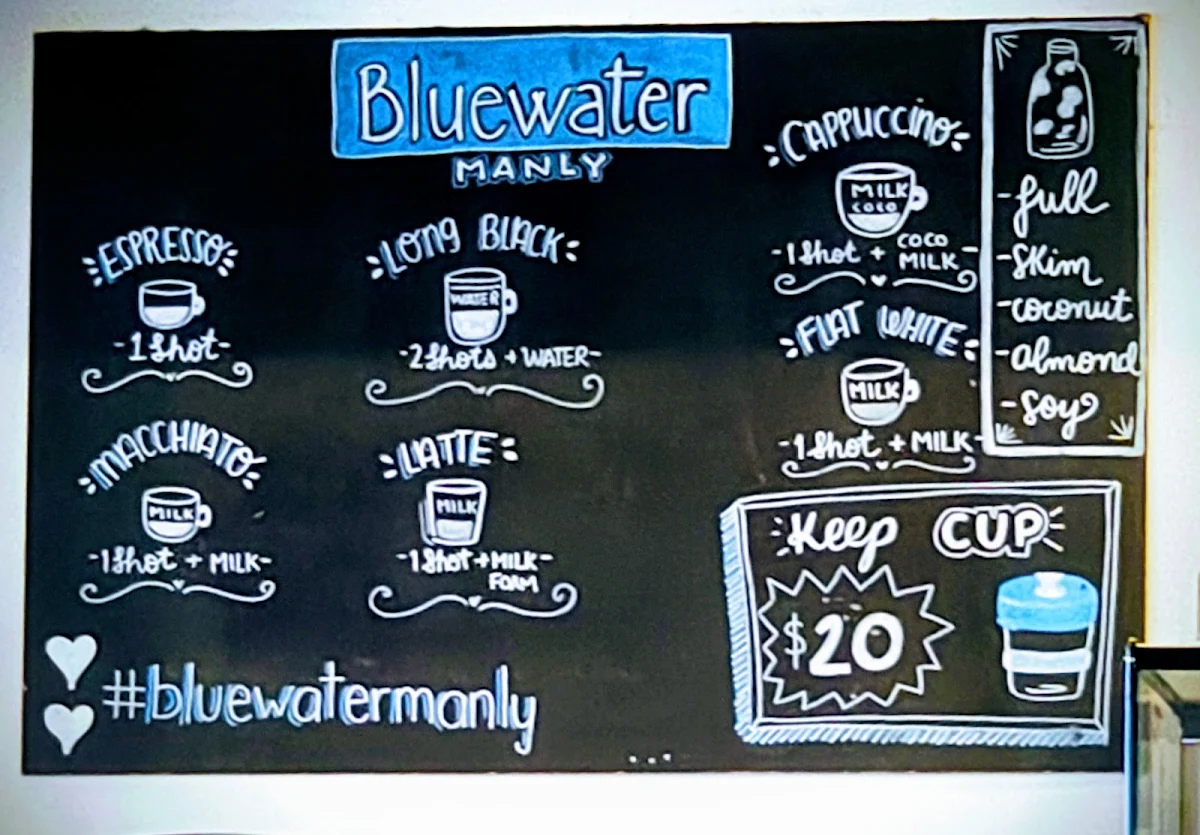 Bluewater
MANLY
ESPRESSO
-1 Shot-
LONG BLACK
WATER
-2 Shots + WATER-
MACCHIATO
MILK
-1 Shot + MILK-
LATTE
MILK
-1 Shot + MILK-
FOAM
CAPPUCCINO
MILK
COCO
-1 Shot + COCO MILK-
FLAT WHITE
MILK
-1 Shot + MILK-
-full
-skim
-coconut
-almond
-soy
Keep CUP
$20
#bluewatermanly